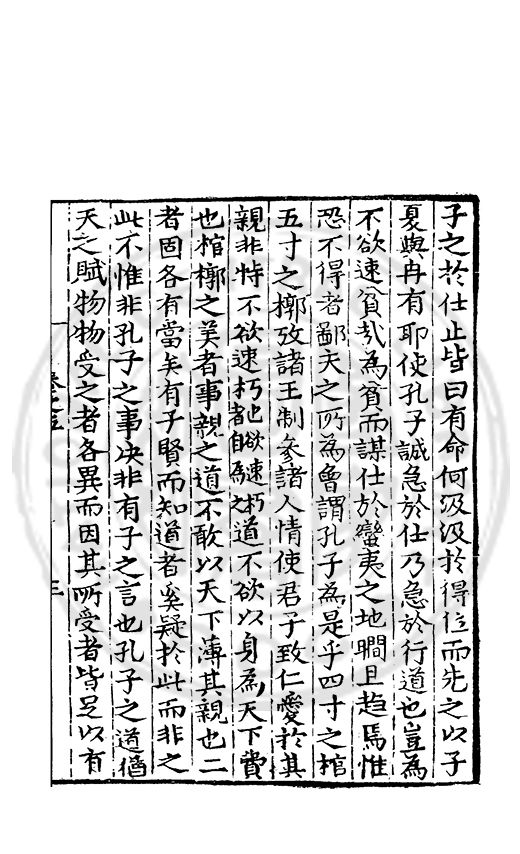 子之於仕止皆曰有命何汲汲於得位而先之以子
夏與冉有耶使孔子誠急於仕乃急於行道也豈為
不欲速貧哉為貧而謀仕於蠻夷之地瞷且趋焉惟
恐不得者鄙夫之所為曾謂孔子為是乎四寸之棺
五寸之槨攷諸王制參諸人情使君子致仁愛於其
親非特不欲速朽也欲速朽者自為之道不欲以身為天下費
也棺槨之美者事親之道不敢以天下薄其親也二
者固各有當矣有子賢而知道者奚疑於此而非之
此不惟非孔子之事决非有子之言也孔子之道猶
天之賦物物受之者各異而因其所受者皆足以有
卷之五
三